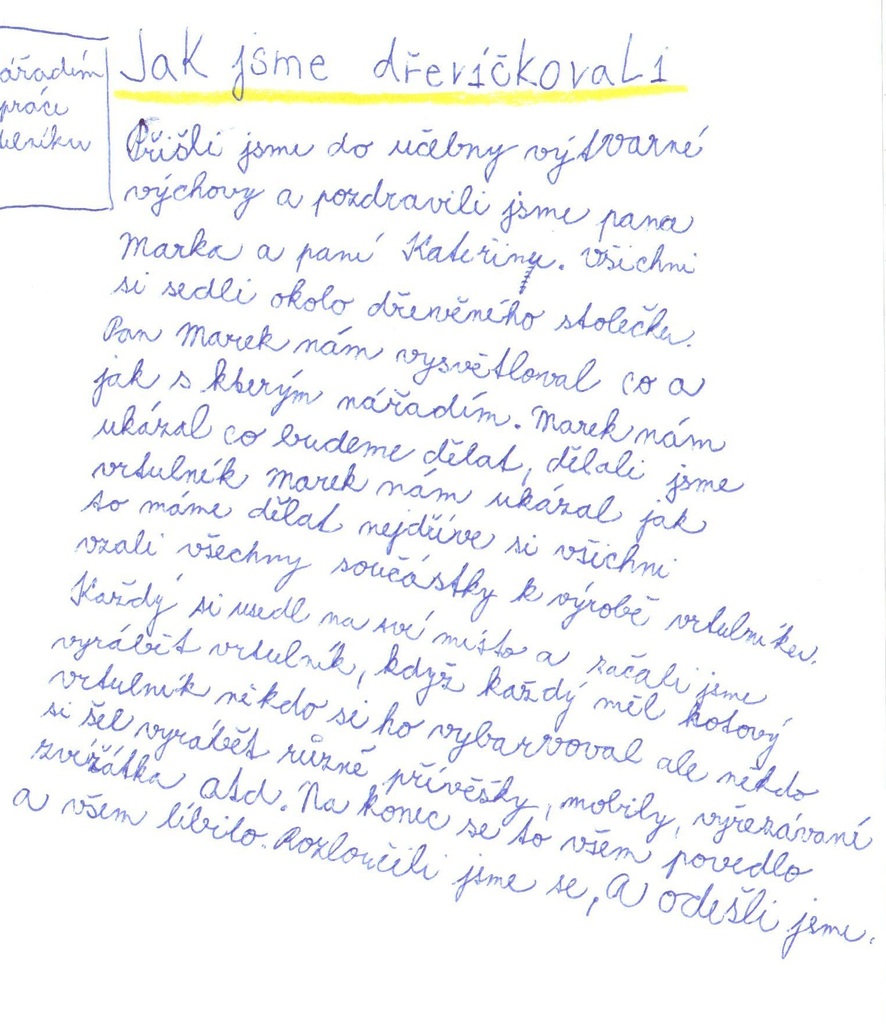 ářadím
práce
Jak jsme dřevíčkovali
Přišli jsme do učebny výtvarné
výchovy a pozdravili jsme pana
Marka a paní Kateřinu. Všichni
si sedli okolo dřevěného stolečku.
Pan Marek nám vysvětloval co a
jak s kterým nářadím. Marek nám
ukázal co budeme dělat, dělali jsme
vrtulník Marek nám ukázal jak
to máme dělat nejdříve si všichni
vzali všechny součástky k výrobě vrtulníku.
Každý si usedl na své místo a začali jsme
vyrábět vrtulník, když každý měl hotový
vrtulník někdo si ho vybarvoval ale někdo
si šel vyrábět různé přívěšky, mobily, vyřezávané
zvířátka atd. Na konec se to všem povedlo
a všem líbilo. Rozloučili jsme se, a odešli jsme.